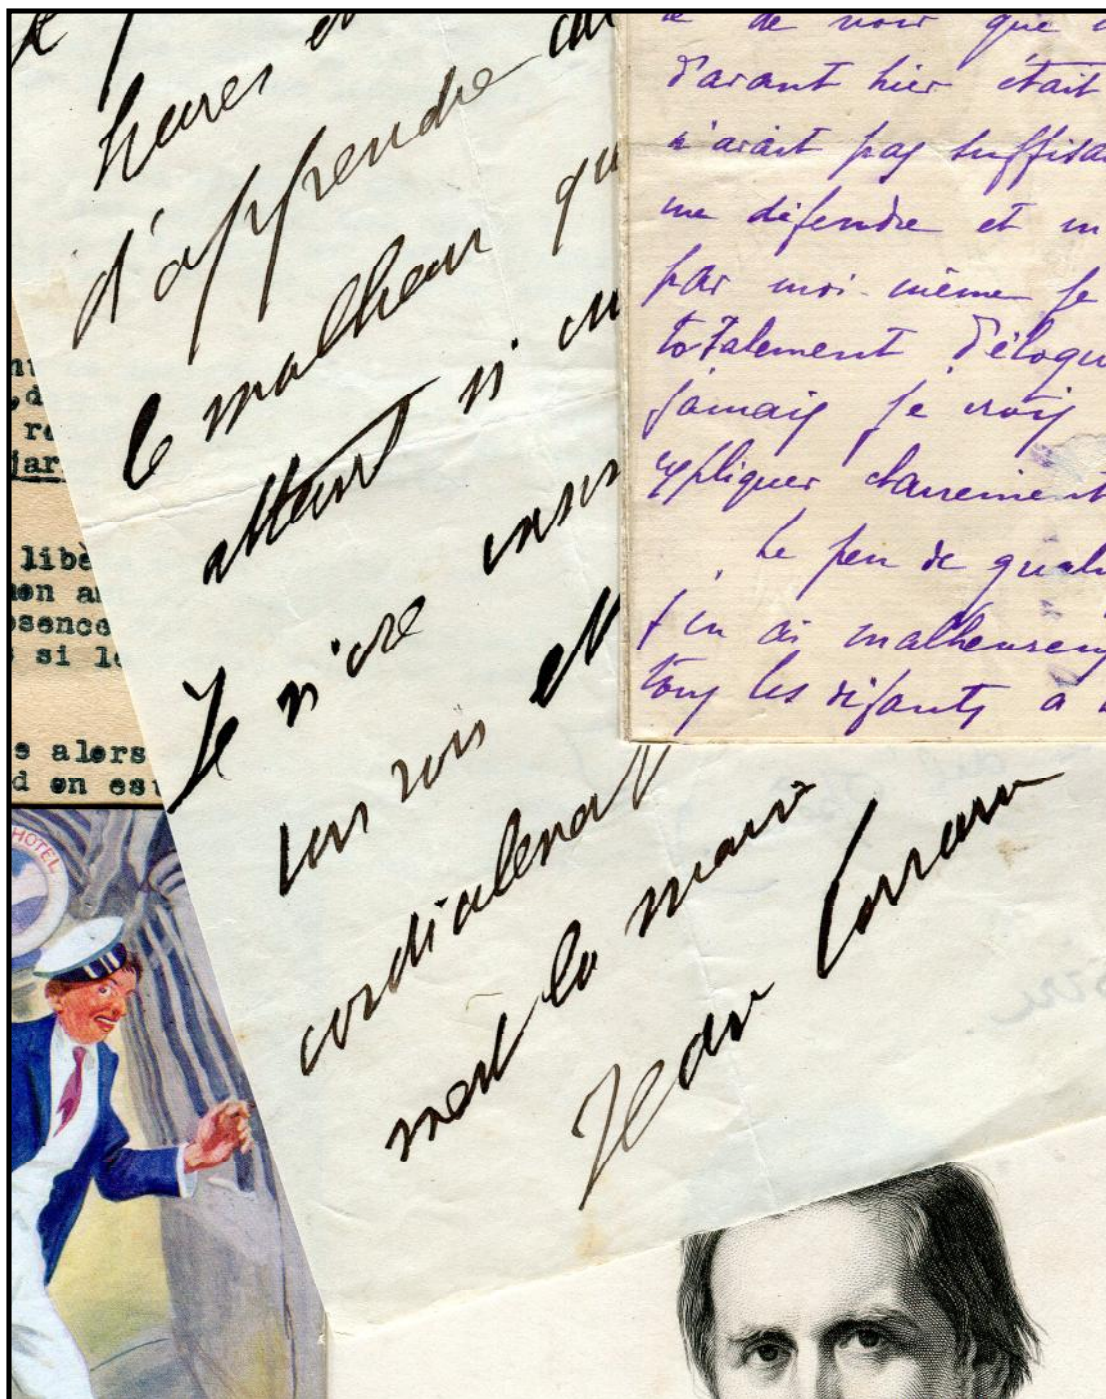 heures
d'apprendre
le malheur qu
atteint ni
Je n'ose
cordialement
la main
Jean Lorrain
de voir que
d'avant hier était
n'avait pas suffisa
me défendre et m
par moi-même je
totalement d'éloqu
jamais je crois
expliquer clairement
Le peu de quali
j'en ai malheureus
tous les défauts a
libè
mon a
sence
si le
e alors
d on est
HOTEL